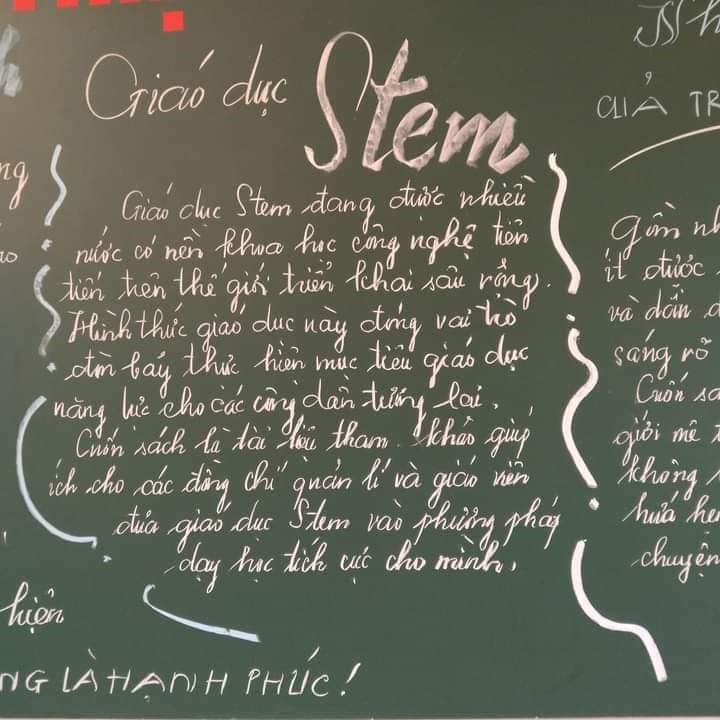 Giáo dục Stem
Giáo dục Stem đang được nhiều
nước có nền khoa học công nghệ tiên
tiến trên thế giới triển khai sâu rộng.
Hình thức giáo dục này đóng vai trò
đòn bẩy thực hiện mục tiêu giáo dục
năng lực cho các công dân tương lai.
Cuốn sách là tài liệu tham khảo giúp
ích cho các đồng chí quản lí và giáo viên
đưa giáo dục Stem vào phương pháp
dạy học tích cực cho mình.
hiện
NG LÀ HẠNH PHÚC!
ng
Nh
CỦA TR
Gồm nh
ít được
và dẫn d
sáng rõ
Cuốn sá
giới mê t
không
hứa hẹ
chuyện